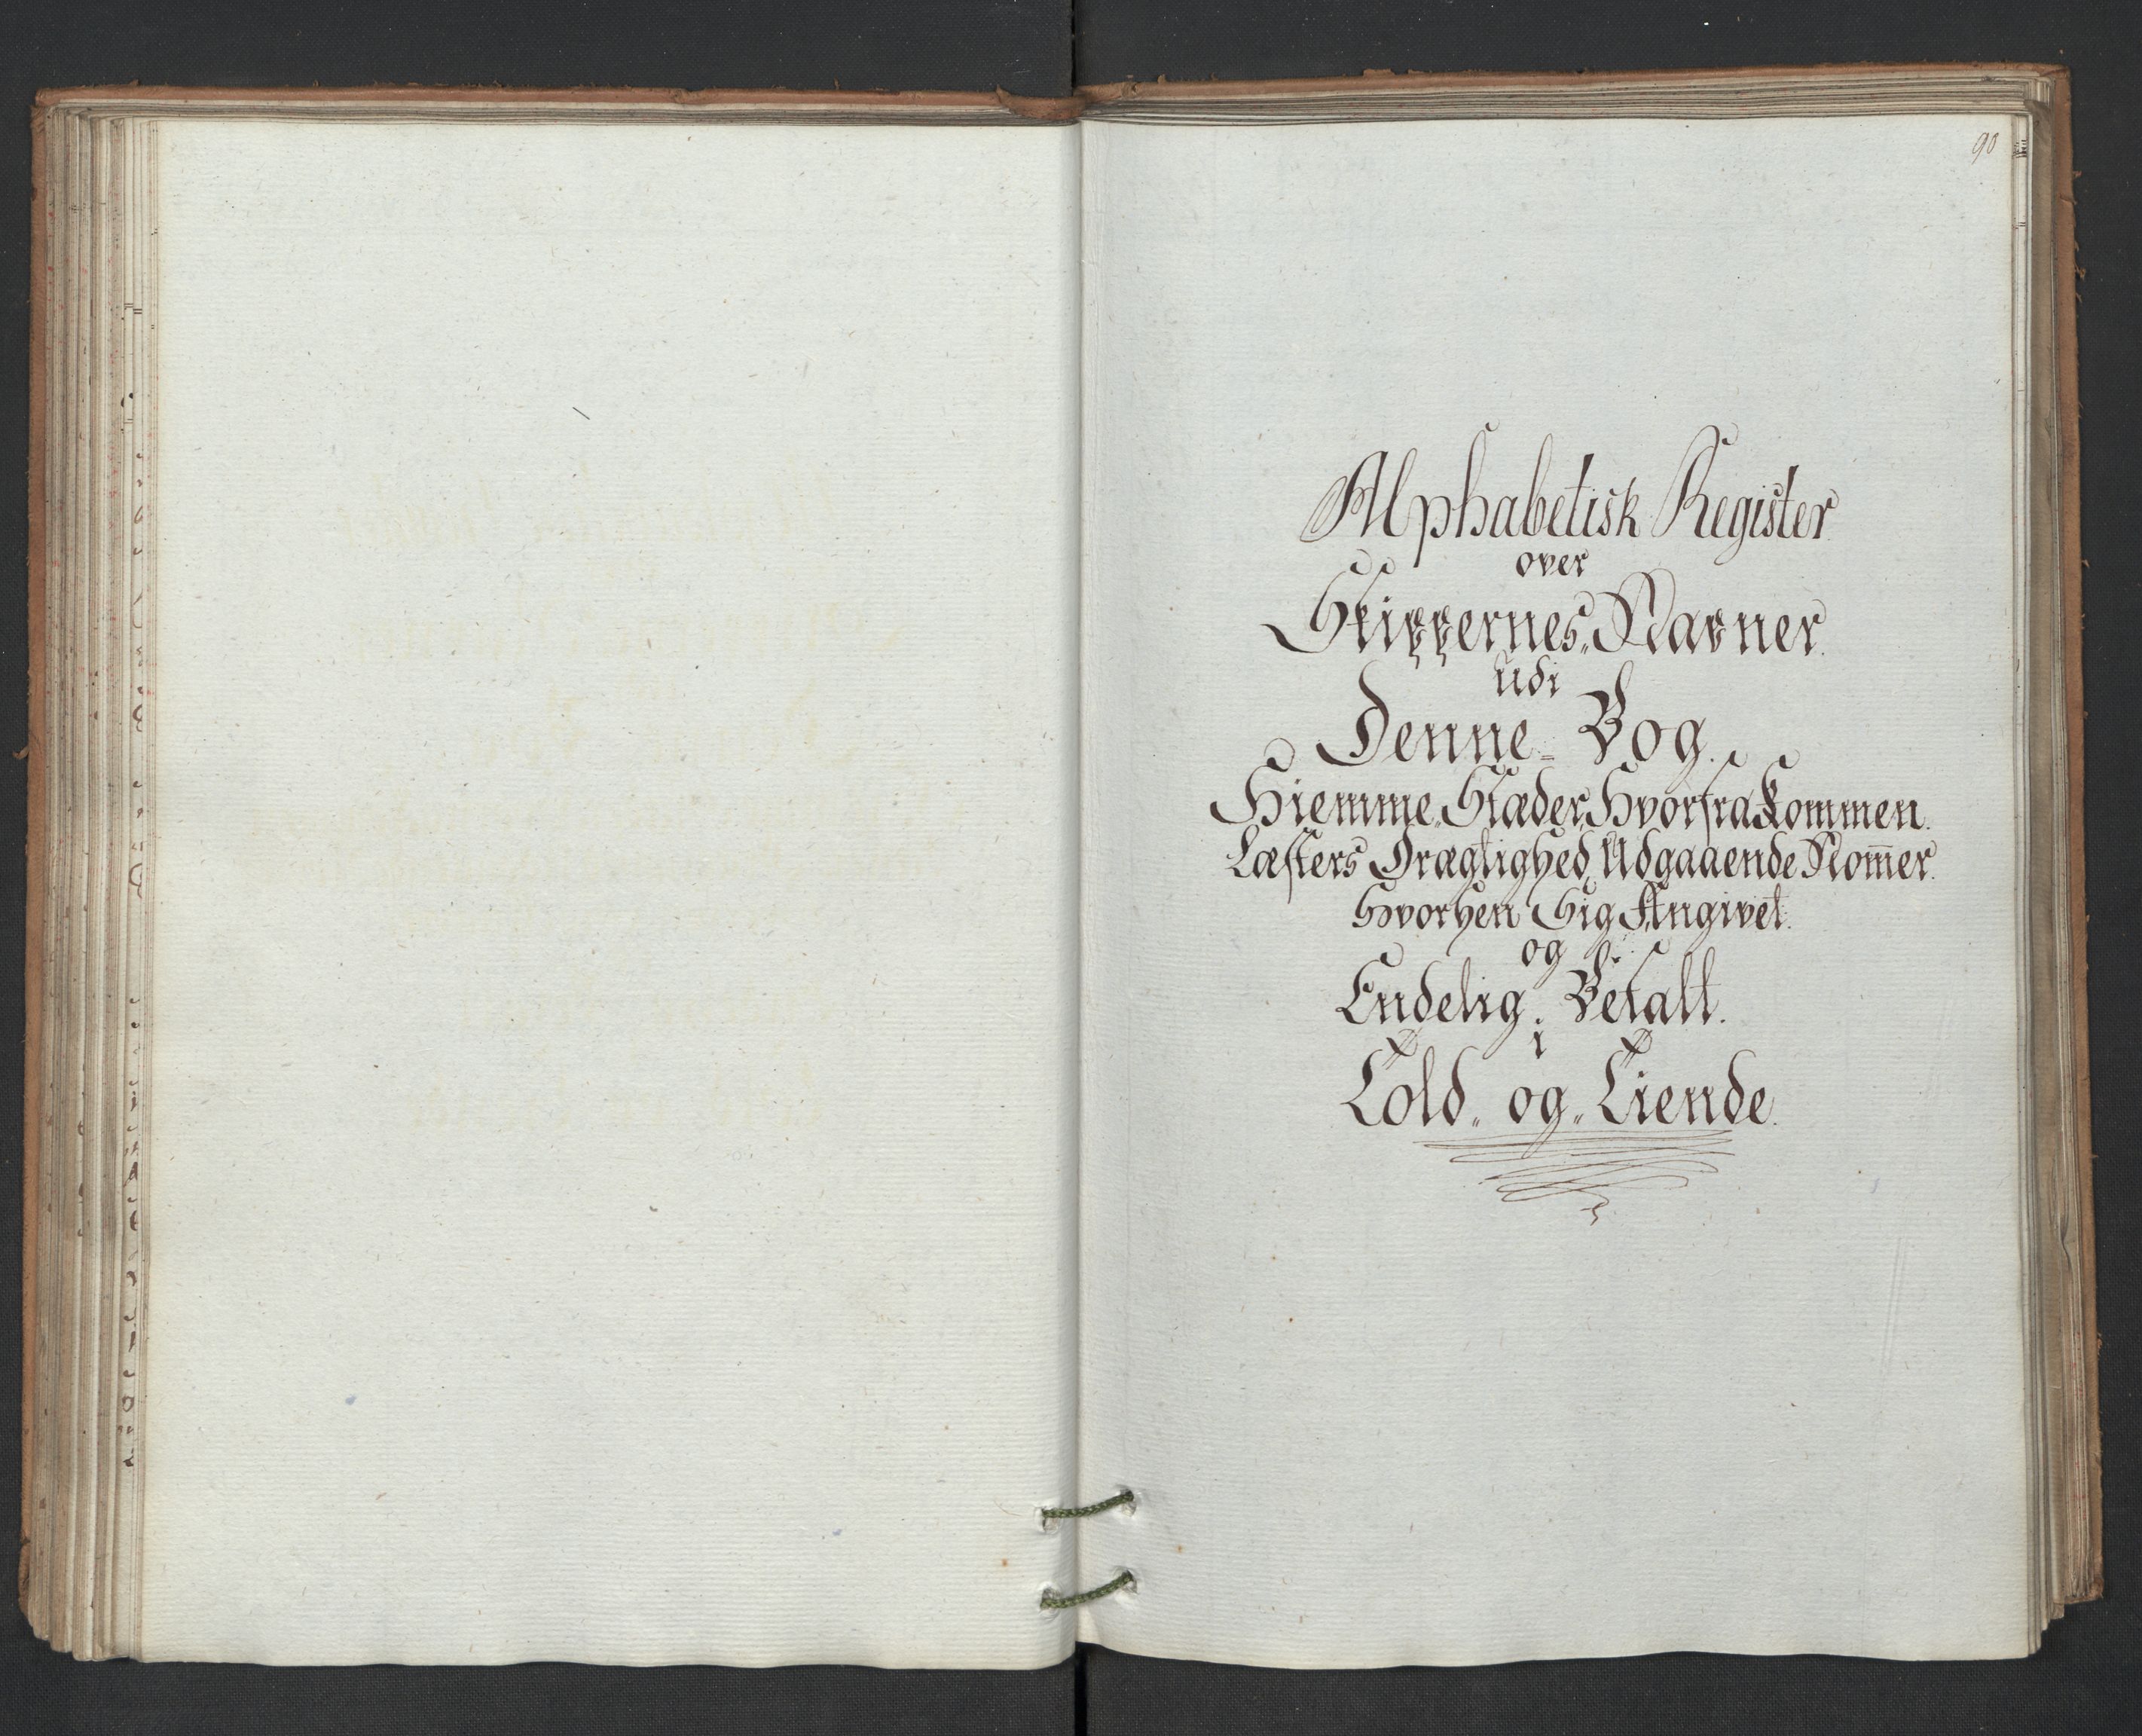 90
Alphabetisk Register
over
Skippernes„ Navner.
udi
Denne„ Bog.
Hiemme„ Stæder, Hvorfra Kommen.
Læsters Drægtighed, Udgaaende Nom̄er.
Hvorhen Sig Angivet.
og
Endelig„ Betalt.
i
Told„ og„ Tiende.